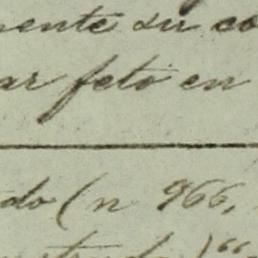 mente su co
ar feto en
do (n 966,